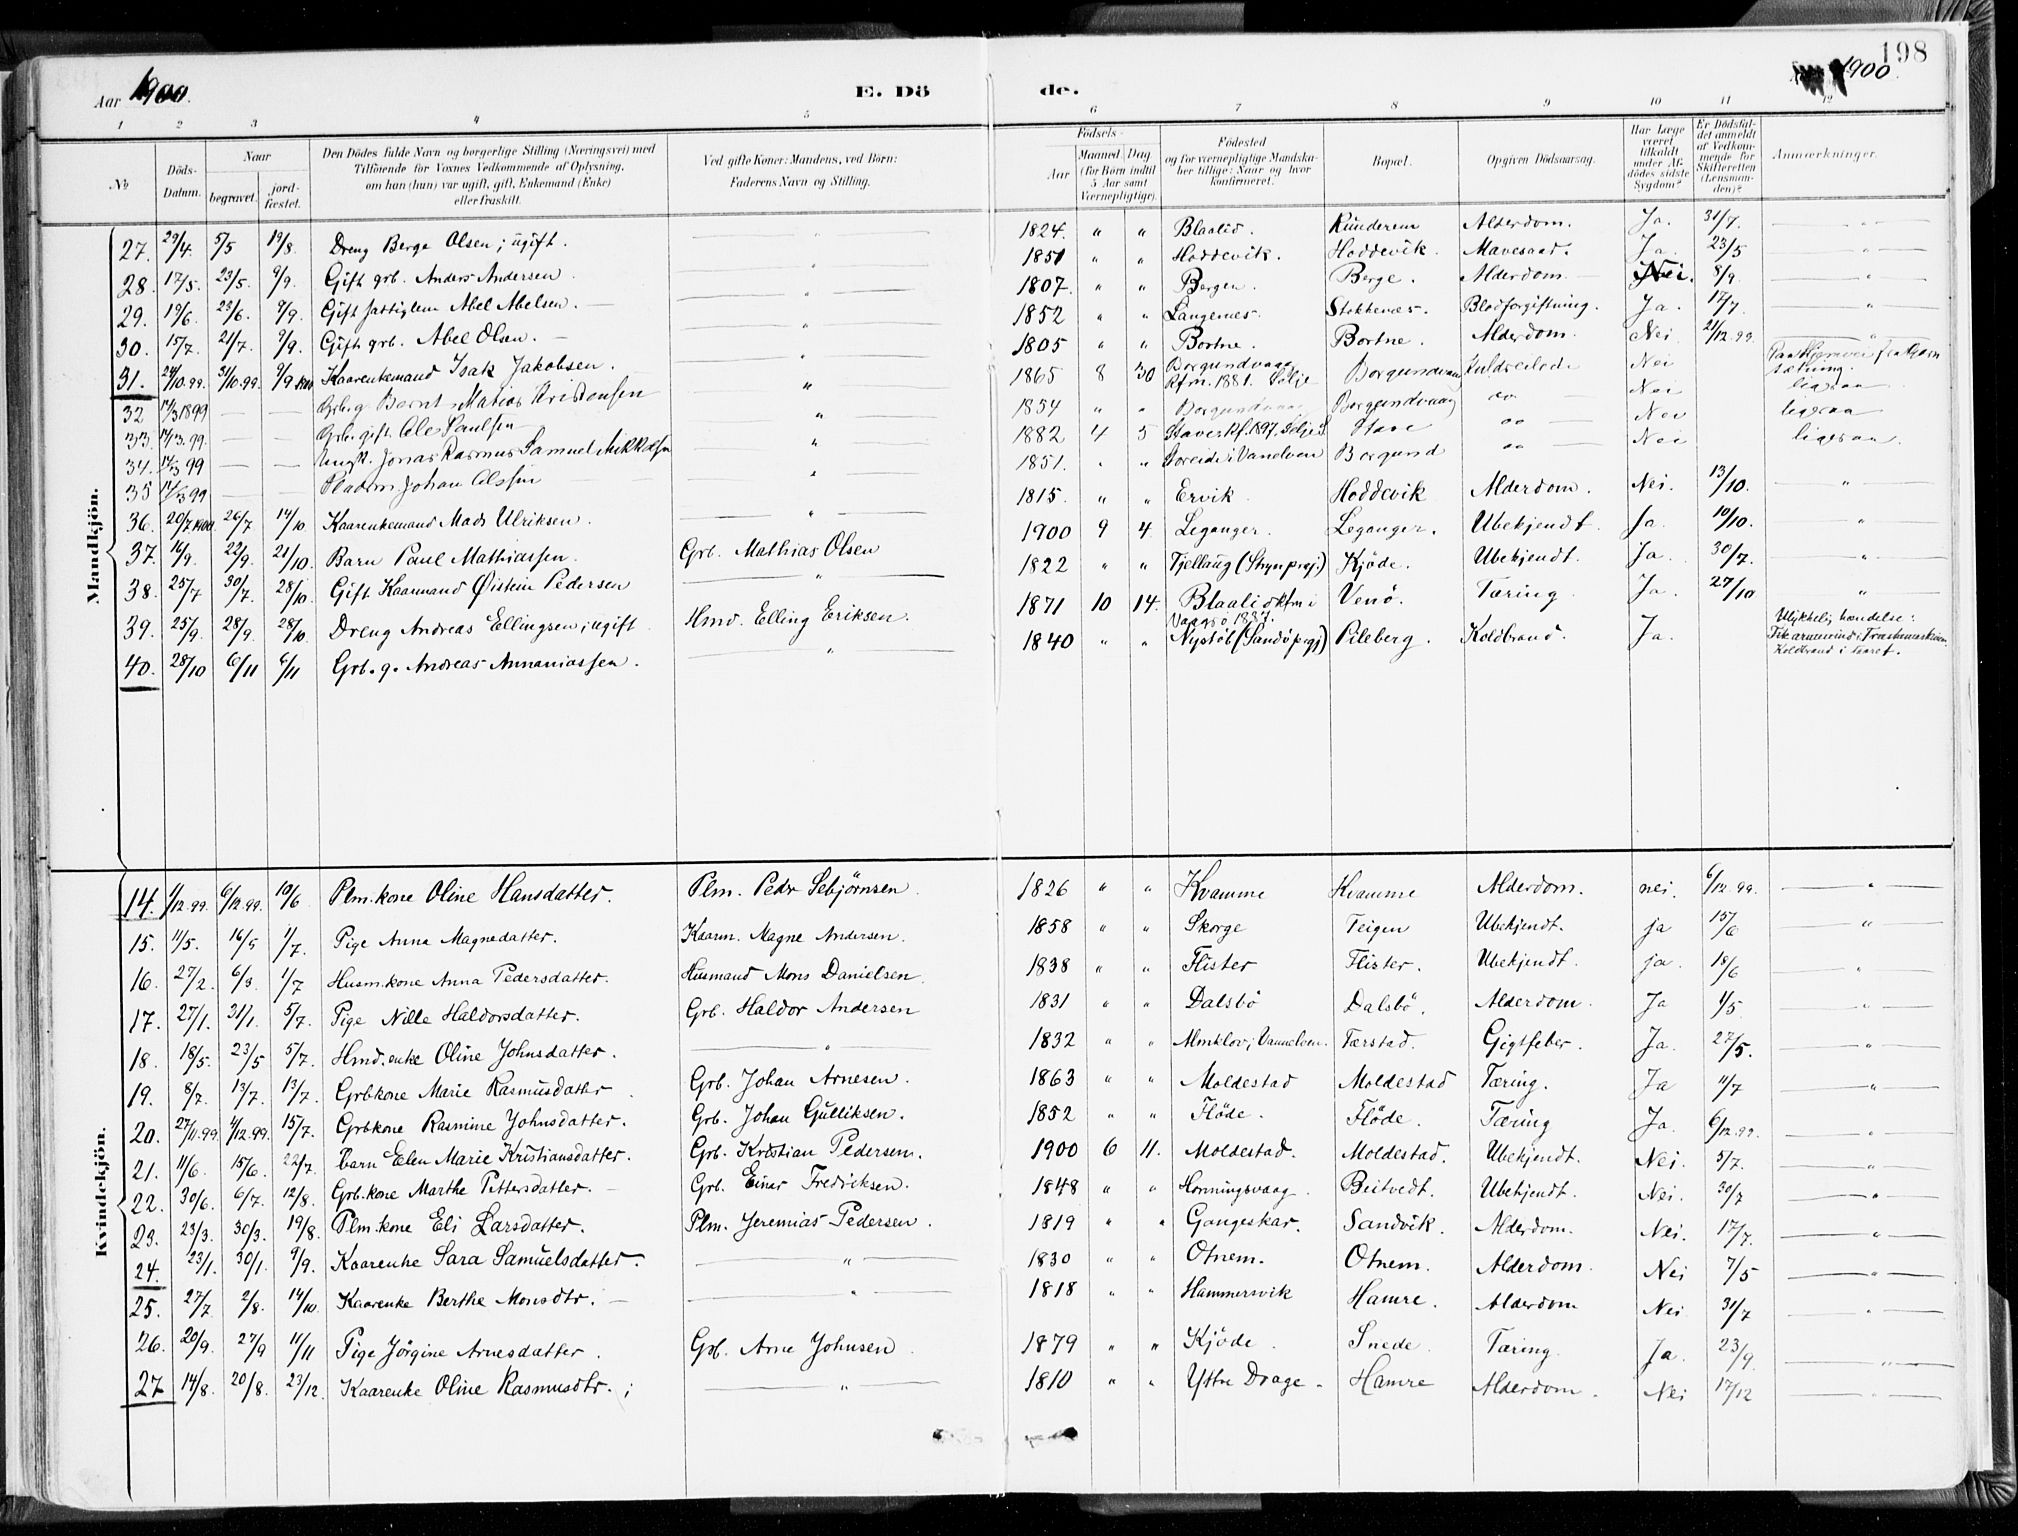 198
Aar 1900.
E. Dö
de.
1900.
1 2 3 4 5 6 7 8 9 10 11 12
№
Döds-Datum.
Naar
begravet.
jord-fæstet.
Den Dödes fulde Navn og borgerlige Stilling (Næringsvei) med
Tilföiende for Voxnes Vedkommende af Oplysning,
om han (hun) var ugift, gift, Enkemand (Enke)
eller fraskilt.
Ved gifte Koner: Mandens, ved Börn:
Faderens Navn og Stilling.
Födsels-
Aar
Maaned. Dag
(for Börn indtil 5 Aar samt Værnepligtige)
Födested
og for værnepligtige Mandska-
ber tillige: Naar og hvor
konfirmeret.
Bopæl.
Opgiven Dödsaarsag.
Har Læge været tilkaldt under Af-dödes sidste Sygdom?
Er Dödsfal-det anmeldt af Vedkom-mende for Skifteretten (Lensman-den)?
Anmærkninger.
Mandkjön.
27. 29/4. 5/5 19/8. Dreng Berge Olsen; ugift. " 1824. " " Blaalid. Runderem Alderdom. Ja. 31/7. "
28. 17/5. 23/5. 9/9. Gift grb. Anders Andersen " 1851 " " Hoddevik. Hoddevik. Mavesaad. Ja. 23/5 "
29. 19/6. 22/6. 9/9. Gift fattiglem Abel Abelsen. " 1807. " " Bergen. Berge. Alderdom Nei. 8/9. "
30. 15/7. 21/7. 9/9. Gift grb. Abel Olsen. " 1852 " " Langenes. Stokkenes. Blodforgiftning. Ja. 17/7. "
31. 24/10.99. 31/10.99. 9/9 1900 Kaarenkemand Isak Jakobsen. " 1805 " " Bortne. Bortne. Alderdom. Nei. 21/12.99. "
32 14/3 1899 Grb. g. Bernt Matias Kristensen " 1865 8 30 Borgundvaag Kfm. 1881. Selje Borgundvaag Kuldseilede Nei
33. 14/3.99. Grb. gift. Ole Paulsen " 1854 " " Borgundvaag Borgundvaag do Nei ligesaa
34. 14/3 99 Ungk. Jonas Rasmus Samuel Mikkelsen " 1882 4 5 Stave Kf. 1897. Selje Stave do Nei ligesaa
35 14/3 99 Johan Olsen " 1851. " " i Vanelven Borgund do Nei ligesaa.
36. 20/7 1900. 26/7 14/10 Kaarenkemand Mads Ulriksen. " 1815. " " Ervik. Hoddevik Alderdom. Nei. 13/10. "
37. 16/9. 22/9. 21/10. Barn Paul Mathiassen. Grb. Mathias Olsen 1900 9 4. Leganger. Leganger. Ubekjendt. Ja. 10/10. "
38. 25/7 30/7. 28/10. Gift Kaarmand Øistein Pedersen " 1822 " " Fjellaug (Stryn prgj.) Kjöde. Ubekjendt. Ja. 30/7. "
39. 25/9. 28/9. 28/10. Dreng Andreas Ellingsen; ugift Hmd. Elling Eriksen. 1871 10 14. Blaalid kfm i Vaagsö 1887. Venö. Tæring. Ja. 27/10 "
40. 28/10 6/11 6/11 Grb. g. Andreas Annaniassen. " 1840 " " Nystöl (Sandö prgj) Pileberg. Koldbrand. Ja. Ulykkelig hændelse: Fik armen ind i Træskemaskinen. Koldbrand i saaret.
Kvindekjön.
14. 1/12.99. 6/12.99. 10/6. Plm. kone Oline Hansdatter. Plm. Pedr Sebjörnsen. 1826 " " Kvamme Kvamme Alderdom. nei. 6/12.99. "
15. 11/5. 16/5 1/7. Pige Anna Magnedatter. Kaarm. Magne Andersen. 1858 " " Skorge Teigen Ubekjendt. ja 15/6 "
16. 27/2. 6/3. 1/7 Husm. kone Anna Pedersdatter. Husmand Mons Danielsen. 1838 " " Flister Flister. Ubekjendt. ja. 18/6 "
17. 27/1. 31/1. 5/7. Pige Nille Haldorsdatter. Grb. Haldor Andersen 1831 " " Dalsbö Dalsbö. Alderdom. Ja 1/5 "
18. 18/5. 23/5 5/7. Hmd. enke Oline Johnsdatter. " 1832 " " Almklov i Vannelven. Færstad. Gigtfeber. Ja. 27/5. "
19. 8/7. 13/7. 13/7. Grbkone Marie Rasmusdatter. Grb. Johan Arnesen. 1863 " " Moldestad Moldestad Tæring. Ja 11/7 "
20. 27/11.99. 4/12.99. 15/7. Grbkone Rasmine Johnsdatter. Grb. Johan Gulliksen. 1852 " " Flöde. Flöde. Tæring Ja. 6/12.99. "
21. 11/6. 15/6. 22/7. barn Elen Marie Kristiansdatter. Grb. Kristian Pedersen. 1900 6 11. Moldestad. Moldestad. Ubekjendt. Nei. 5/7. "
22. 30/6. 6/7. 12/8. Grb. kone Marthe Pettersdatter. Grb. Einer Fredriksen. 1848 " " Honningsvaag Beitvedt. Ubekjendt. Nei. 30/7 "
23. 23/3. 30/3. 19/8. Plm. kone Eli Larsdatter. Plm. Jeremias Pedersen. 1819 " " Gangeskar. Sandvik. Alderdom. Nei. 17/7. "
24. 23/1. 30/1. 9/9. Kaarenke Sara Samuelsdatter. " 1830 " " Otnem. Otnem. Alderdom. Nei 7/5 "
25. 27/7 2/8. 14/10. Kaarenke Berthe Monsdtr. " 1818 " " Hammersvik Hamre. Alderdom Nei 31/7 "
26. 20/9. 27/9 11/11 Pige Jörgine Arnesdatter. Grb. Arne Johnsen. 1879 " " Kjöde. Snede. Tæring. Ja. 23/9. "
27 14/8. 20/8. 23/12. Kaarenke Oline Rasmusdtr. " 1810 " " Yttre Drage. Hamre Alderdom. Nei 17/12 "